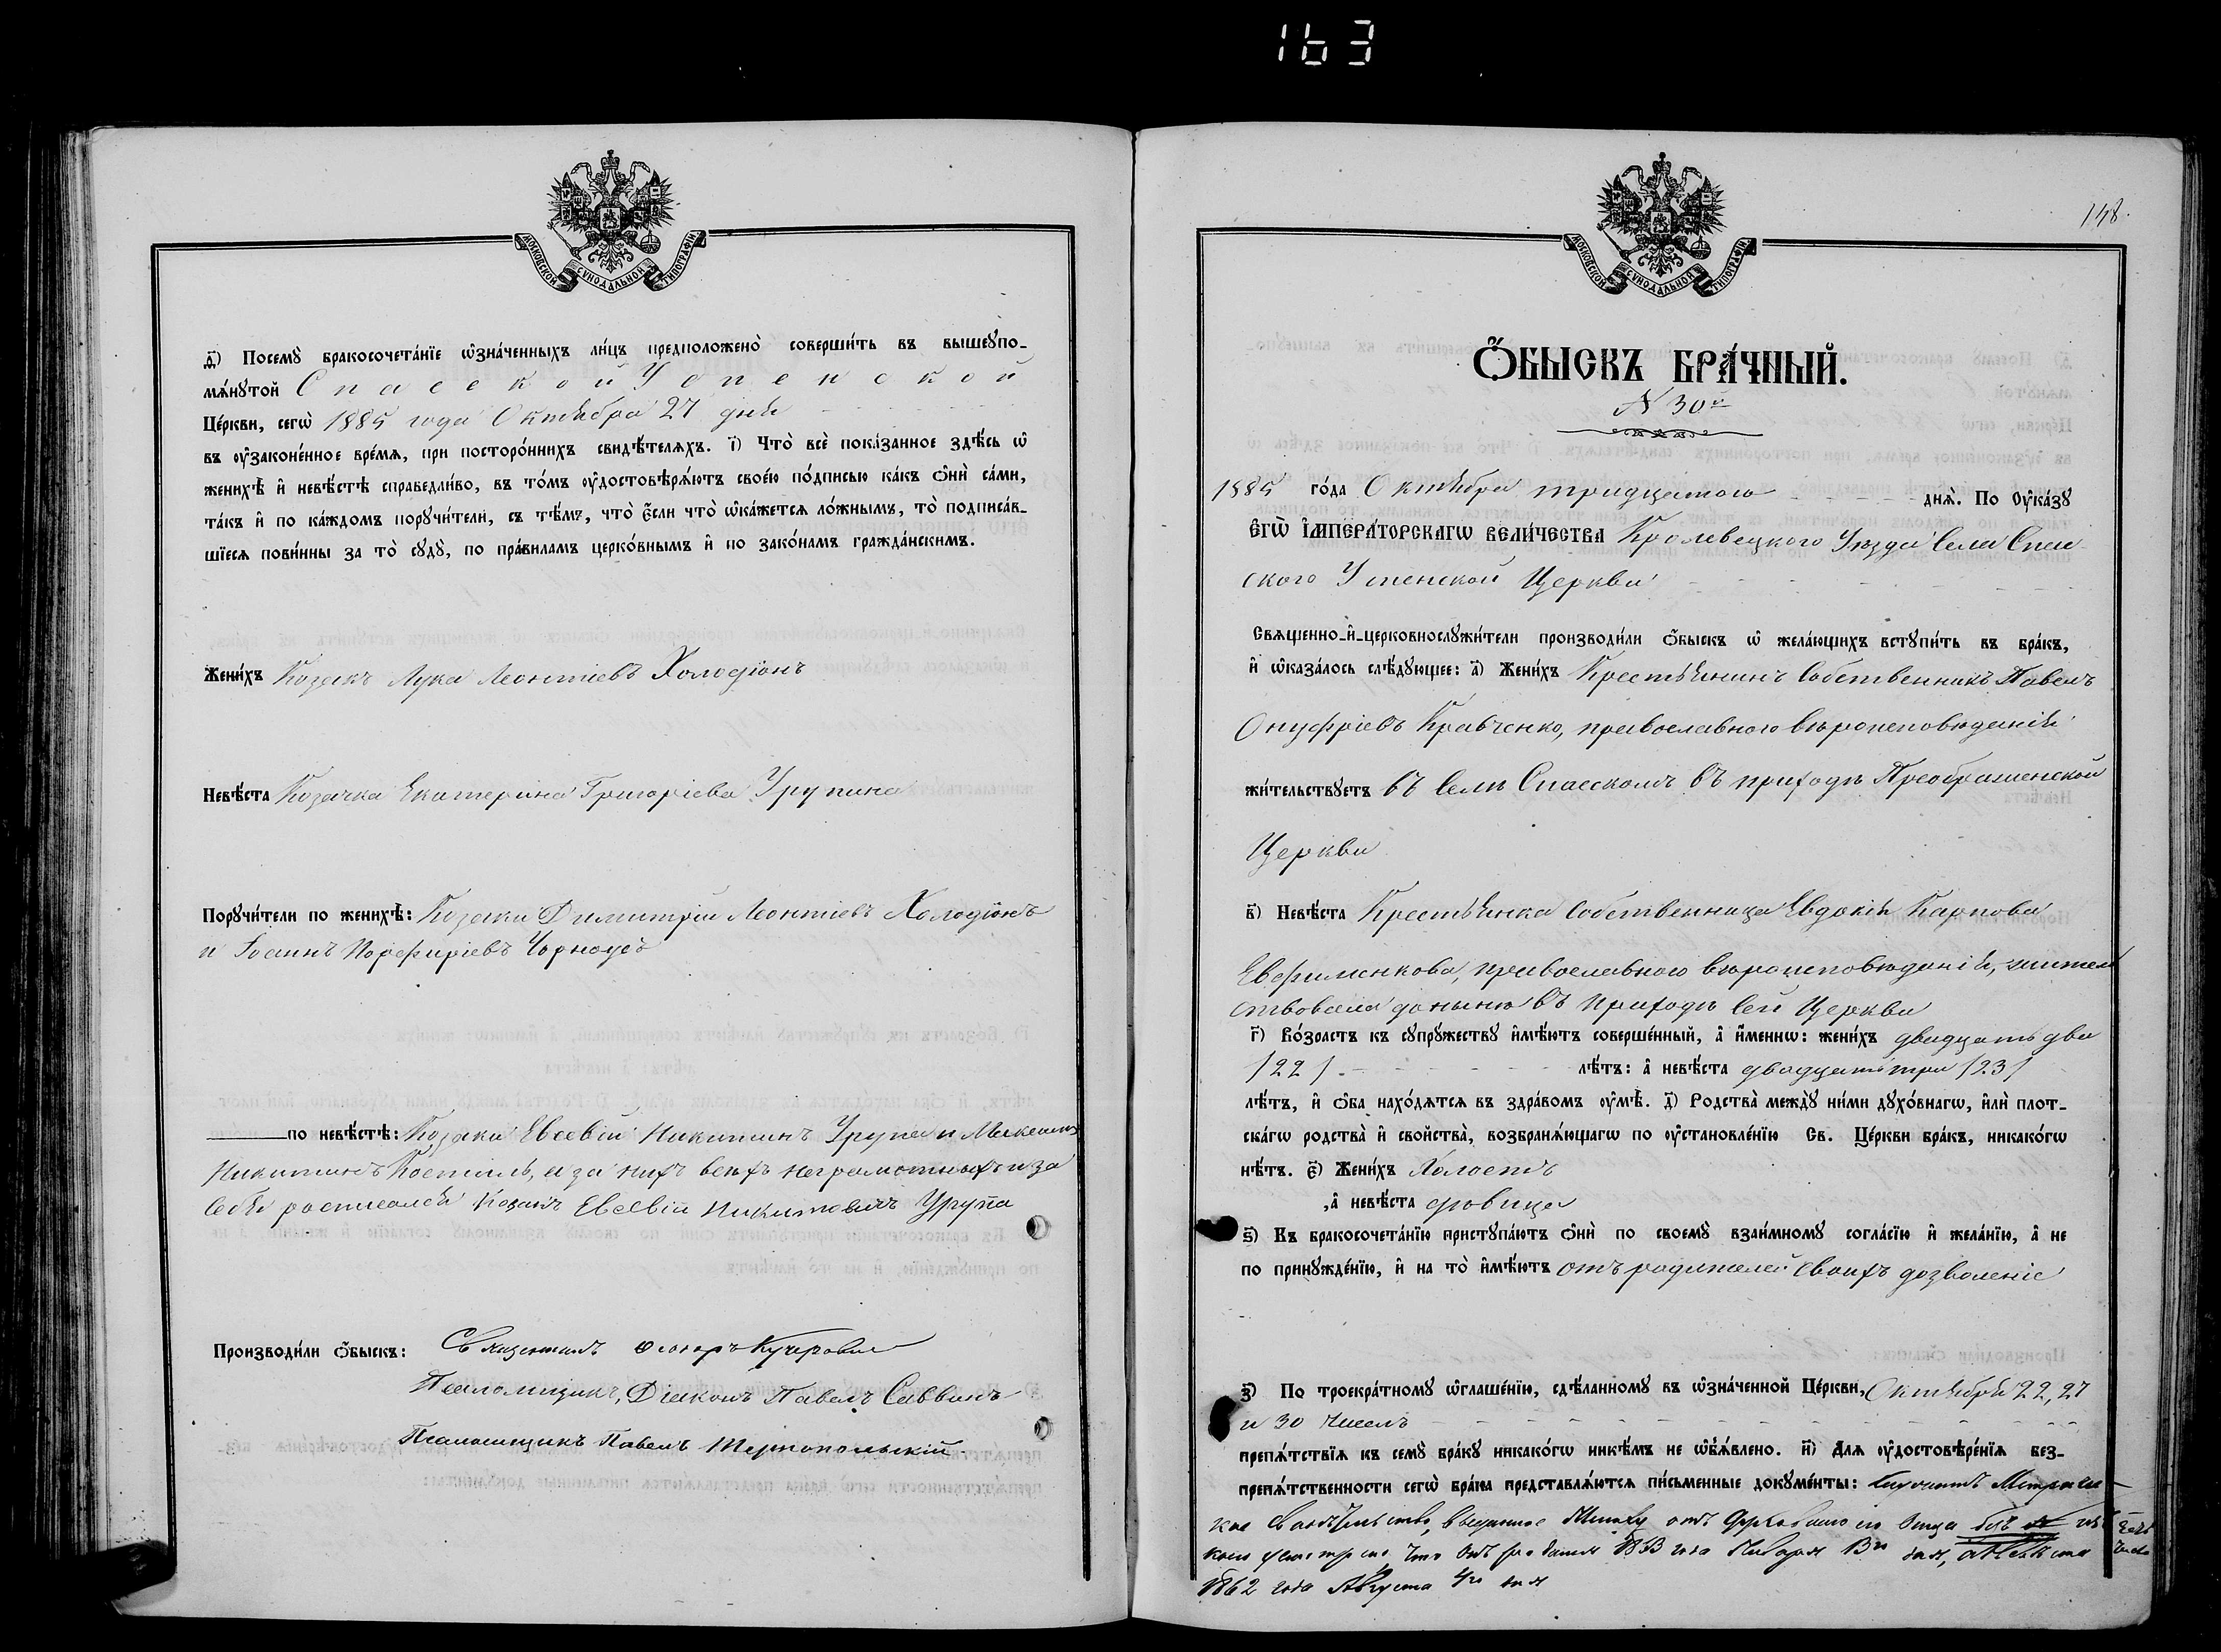 163
МОСКОВСКОЙ СѴНОДАЛЬНОЙ ТИПОГРАФІИ.
д҃і) Посемꙋ̀ бракосочета́нїе ѡ҆зна́ченныхъ ли́цъ предположено̀ соверши́ть въ вышеꙋпо-
мѧ́нꙋтой Спасской Успенской
Це́ркви, сегѡ̀ 1885 года Октября 27 дня
въ ᲂу҆законе́нное вре́мѧ, при посторо́ннихъ свидѣ́телѧхъ. і҃) Что̀ всѐ пока́занное здѣ́сь ѡ҆
женихѣ̀ и҆ невѣ́стѣ справедли́во, въ то́мъ ᲂу҆достовѣрѧ́ютъ свое́ю по́дписью ка́къ ѻ҆нѝ са́ми,
та́къ и҆ по ка́ждомъ порꙋчи́тели, съ тѣ́мъ, что̀ є҆́сли что̀ ѡ҆ка́жетсѧ ло́жнымъ, то̀ подписа́в-
шїесѧ пови́нны за то̀ сꙋдꙋ̀, по пра́виламъ церко́внымъ и҆ по зако́намъ гражда́нскимъ.
Жени́хъ Козакъ Лука Леонтіевъ Холодіонъ
Невѣ́ста Козачка Екатерина Григоріева Урупина
Порꙋчи́тели по женихѣ̀: Козаки Димитрій Леонтіевъ Холодіонъ
и Іоаннъ Порфиріевъ Чорноусъ
по невѣ́стѣ: Козаки Евсевій Никитинъ Урупа и
Никитинъ Костиль, а за нихъ всѣхъ неграмотныхъ и за
себя росписался Козакъ Евсевій Никитовичъ Урупа
Производи́ли ѻ҆́быскъ: Священникъ Кучеровскій
Псаломщикъ, Діаконъ Павелъ Саввинъ
Псаломщикъ Павелъ Тернопольскій.
148.
МОСКОВСКОЙ СѴНОДАЛЬНОЙ ТИПОГРАФІИ.
Ѻ҆́БЫСКЪ БРА́ЧНЫЙ.
N 30й
1885 го́да Октября тридцатого днѧ̀. По Оу҆ка́зꙋ
Є҆ГѠ̀ І҆МПЕРА́ТОРСКАГѠ ВЕЛИ́ЧЕСТВА Кролевецкого Уѣзда Села Спас-
ского Успенской Церкви
Свѧще́нно-и҆-церковнослꙋжи́тели производи́ли ѻ҆́быскъ ѡ҆ жела́ющихъ встꙋпи́ть въ бра́къ,
и҆ ѡ҆каза́лось слѣ́дꙋющее: а҃) Жени́хъ Крестьянинъ Собственникъ Павелъ
Онуфріевъ Кравченко, православного вѣроисповѣданія
жи́тельствꙋетъ въ Селѣ Спасскомъ въ приходѣ Преображенской
Церкви
в҃) Невѣ́ста Крестьянка Собственница Евдокія Карпова
Евфименкова, православного вѣроисповѣданія, житель
ствовала донынѣ въ приходѣ сей Церкви
г҃) Во́зрастъ къ сꙋпрꙋ́жествꙋ и҆мѣ́ютъ соверше́нный, а҆ и҆́меннѡ: жени́хъ двадцать два
/22/ лѣ́тъ: а҆ невѣ́ста двадцать три /23/
лѣ́тъ, и҆ ѻ҆́ба нахо́дѧтсѧ въ здра́вомъ ᲂу҆мѣ̀. д҃) Родства̀ междꙋ̀ ни́ми дꙋхо́внагѡ, и҆лѝ плот-
ска́гѡ родства̀ и҆ свойства̀, возбранѧ́ющагѡ по ᲂу҆становле́нїю Св. Це́ркви бра́къ, никако́гѡ
нѣ́тъ. є҃) Жени́хъ Холостъ
,а҆ невѣ́ста дѣвица
ѕ҃) Къ бракосочета́нїю пристꙋпа́ютъ ѻ҆нѝ по своемꙋ̀ взаи́мномꙋ согла́сїю и҆ жела́нїю, а҆ не
по принꙋжде́нїю, и҆ на то̀ и҆мѣ́ютъ отъ родителей своихъ дозволеніе
з҃) По троекра́тномꙋ ѡ҆глаше́нїю, сдѣ́ланномꙋ въ ѡ҆зна́ченной Це́ркви, Октября 22, 27
и 30 чиселъ
препѧ́тствїѧ къ семꙋ̀ бра́кꙋ никако́гѡ никѣ́мъ не ѡ҆б̾ѧ́влено. и҃) Для ᲂу҆достовѣре́нїѧ без-
препѧ́тственности сегѡ̀ бра́ка представлѧ́ютсѧ пи́сьменные докꙋме́нты:
кое Свидѣтельство, выданное отъ
что онъ родился 1863 года Января 13го дня, а Невѣста
1862 года Августа 4го дня